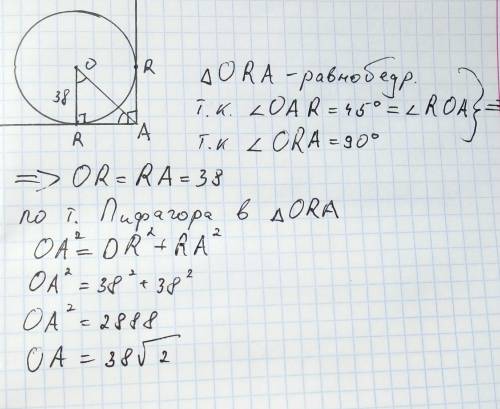 O
38
R
R
A
△ORA - равнобедр.
т.к. ∠OAR = 45° = ∠ROA
т.к ∠ORA = 90°
=>
=> OR = RA = 38
по т. Пифагора в △ORA
OA² = OR² + RA²
OA² = 38² + 38²
OA² = 2888
OA = 38√2